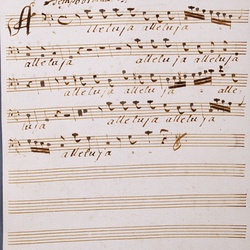 Alleluja alleluja
alleluja alleluja alleluja
alleluja alleluja alle-
luja alleluja alleluja
alleluja